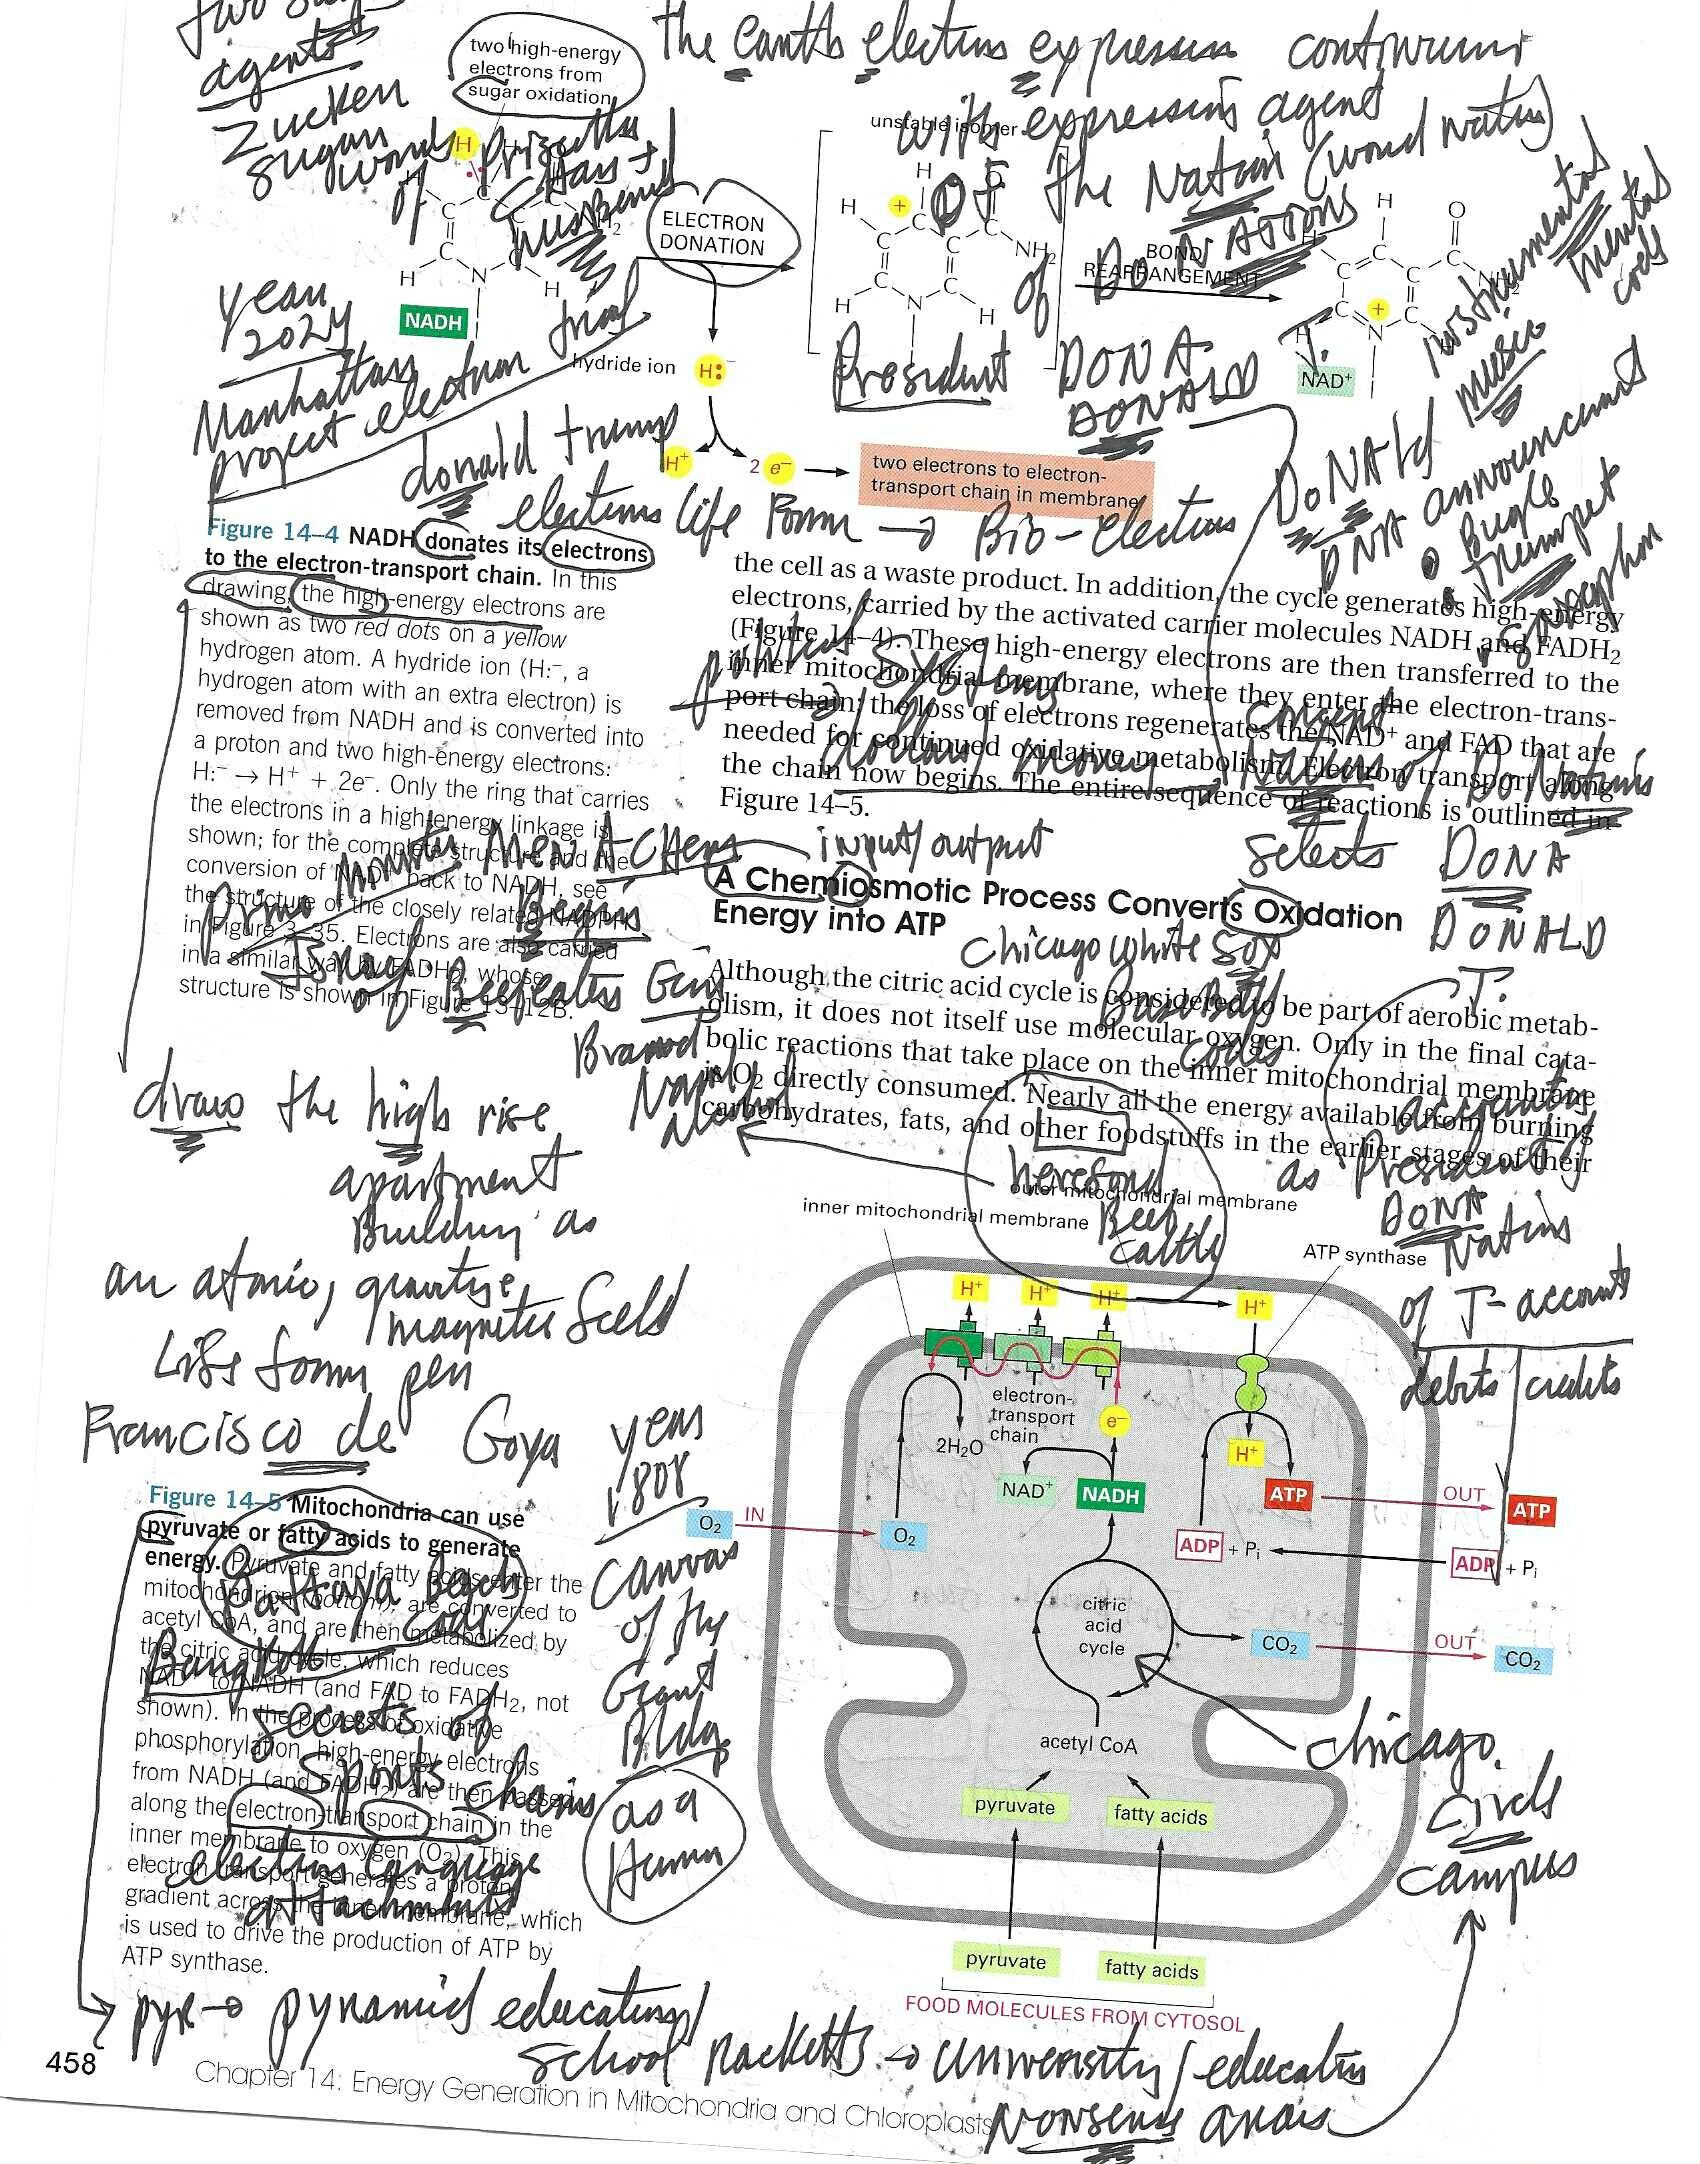 two
agents
Zucken
sugan
words
of
two high-energy
electrons from
sugar oxidation
the Eanth electins expression continuum
with expressing agent
of the Nation (word nation)
of Do NATIONS
unstable isomer
H
H
H
H
N
C
NADH
ELECTRON
DONATION
H
H
+
O
NH2
H
H
N
BOND
REARRANGEMENT
H
O
C
+
N
NAD+
Instrumental
mental
cods
music
year
2024
Manhattan
project electron trial
hydride ion
H:−
President
DONA
DONALD
T.
donald trump
H+
2 e−
two electrons to electron-
transport chain in membrane
DONAld
DNA announcement
Bugle
trumpet
saxophon
electins life Form → Bio-electins
Figure 14–4 NADH donates its electrons
to the electron-transport chain. In this
drawing, the high-energy electrons are
shown as two red dots on a yellow
hydrogen atom. A hydride ion (H:−, a
hydrogen atom with an extra electron) is
removed from NADH and is converted into
a proton and two high-energy electrons:
H:− → H+ + 2e−. Only the ring that carries
the electrons in a high-energy linkage is
shown; for the complete structure and the
conversion of NAD+ back to NADH, see
the structure of the closely related NADPH
in Figure 3–35. Electrons are also carried
in a similar way by FADH2, whose
structure is shown in Figure 13–12B.
the cell as a waste product. In addition, the cycle generates high-energy
electrons, carried by the activated carrier molecules NADH and FADH2
(Figure 14–4). These high-energy electrons are then transferred to the
inner mitochondrial membrane, where they enter the electron-trans-
port chain; the loss of electrons regenerates the NAD+ and FAD that are
needed for continued oxidative metabolism. Electron transport along
the chain now begins. The entire sequence of reactions is outlined in
Figure 14–5.
printed systems
dollars/ money
Nations of DoNatins
selects DONA
DONALD
T.
Prime Minister MenAchem
Begin
Israel
of Beefeaters Gin
Brand
alcohol
input/output
A Chemiosmotic Process Converts Oxidation
Energy into ATP
Chicago white sox
Baseball
codes
Although the citric acid cycle is considered to be part of aerobic metab-
olism, it does not itself use molecular oxygen. Only in the final cata-
bolic reactions that take place on the inner mitochondrial membrane
is O2 directly consumed. Nearly all the energy available from burning
carbohydrates, fats, and other foodstuffs in the earlier stages of their
accounting
as President of
DONA
Natins
of T-account
debits/credits
hereford
Beef
Cattle
draw the high rise
apartment
Building as
an atomic, gravity,
magnetic field
Life form pen
Francisco de Goya
years
1808
canvas
of the
Giant
Bldg
as a
Human
Figure 14–5 Mitochondria can use
pyruvate or fatty acids to generate
energy. Pyruvate and fatty acids enter the
mitochondrion (bottom), are converted to
acetyl CoA, and are then metabolized by
the citric acid cycle, which reduces
NAD+ to NADH (and FAD to FADH2, not
shown). In the process of oxidative
phosphorylation, high-energy electrons
from NADH (and FADH2) are then passed
along the electron-transport chain in the
inner membrane to oxygen (O2). This
electron transport generates a proton
gradient across the inner membrane, which
is used to drive the production of ATP by
ATP synthase.
Pattaya beach
Bangkok
secrets of
Sports chains
electins language
attachments
inner mitochondrial membrane
outer mitochondrial membrane
ATP synthase
H+
H+
H+
H+
electron-
transport
chain
e−
2H2O
NAD+
NADH
H+
ATP
OUT
ATP
O2
IN
O2
ADP + Pi
ADP + Pi
citric
acid
cycle
CO2
OUT
CO2
acetyl CoA
pyruvate
fatty acids
pyruvate
fatty acids
FOOD MOLECULES FROM CYTOSOL
chicago
circle
campus
pyr → pyramid education/
school racketts → University/education
Nonsense anais
458
Chapter 14: Energy Generation in Mitochondria and Chloroplasts